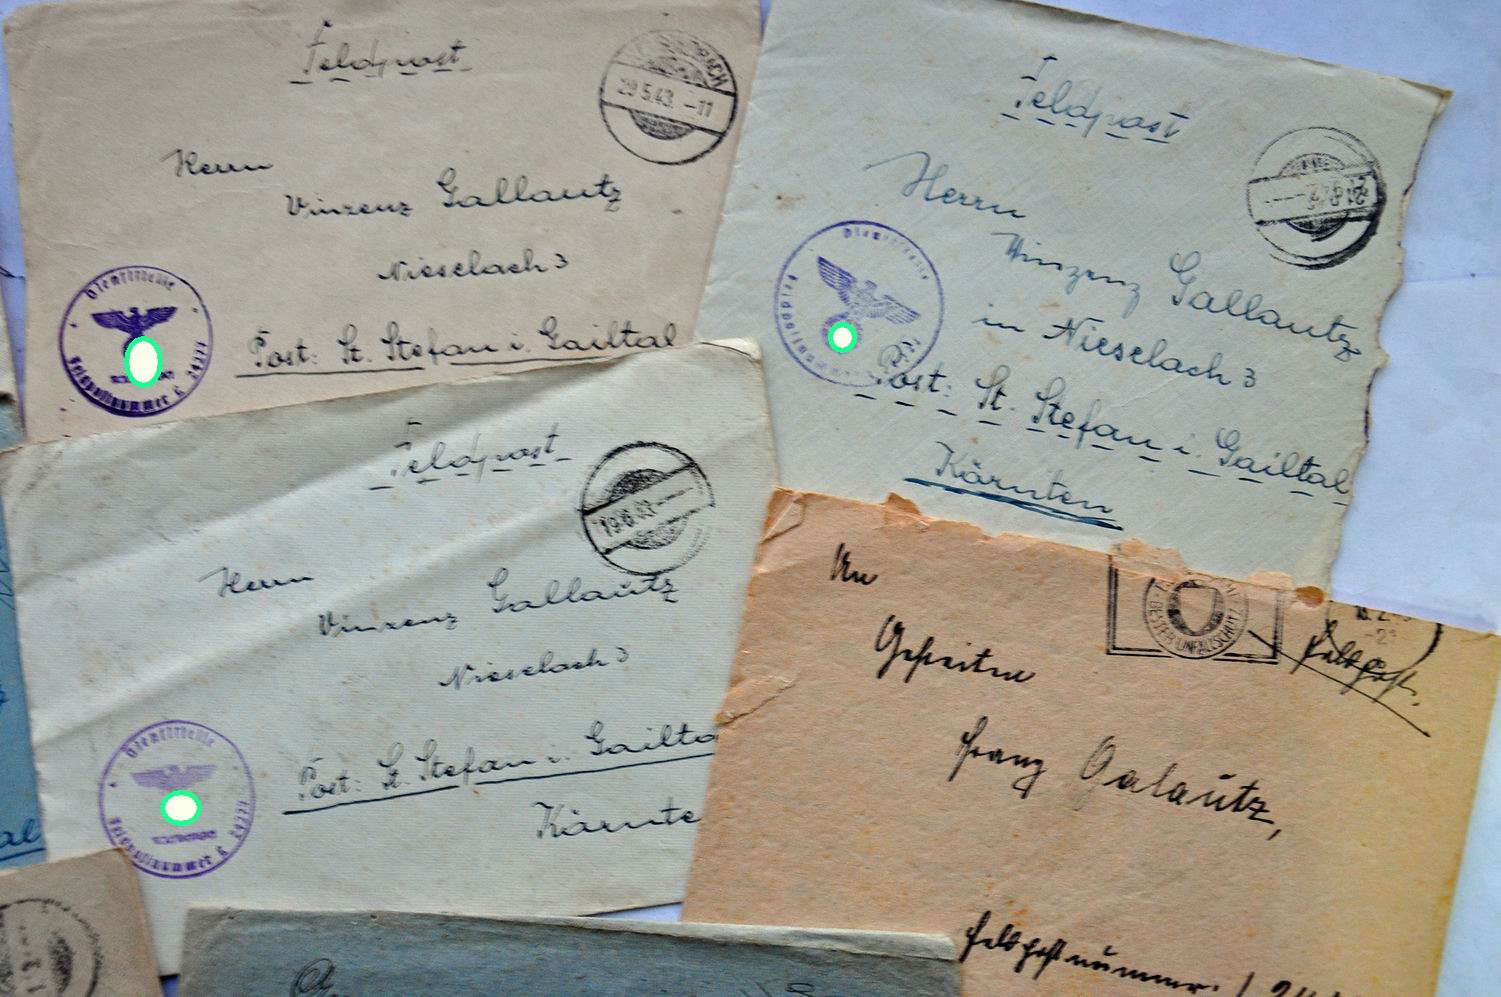 Feldpost
29.5.43.-11
Herrn
Vinzenz Gallautz
Nieselach 3
Post: St. Stefan i. Gailtal
Dienststelle
Feldpostnummer
Feldpost
Herrn
Vinzenz Gallautz
in Nieselach 3
Post: St. Stefan i. Gailtal
Kärnten
Dienststelle
Feldpostnummer
Feldpost
19.6.43
Herrn
Vinzenz Gallautz
Nieselach 3
Post: St. Stefan i. Gailta
Kärnte
Dienststelle
Feldpostnummer
An
BESTER UNFALLSCHUTZ
Feldpost.
Gefreiten
Franz Galautz,
Feldpostnummer:
al